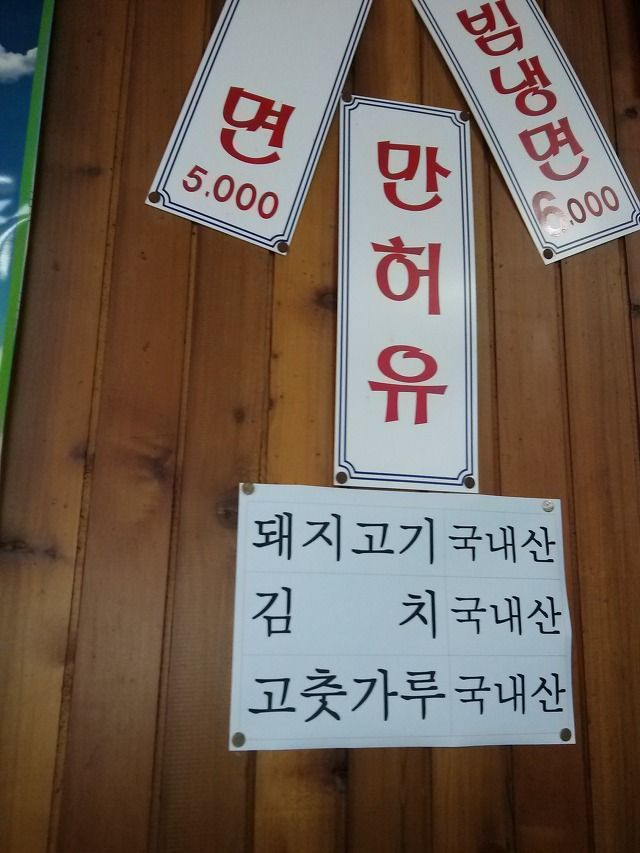 면
5.000
만허유
빔냉면
6.000
돼지고기 국내산
김 치 국내산
고춧가루 국내산